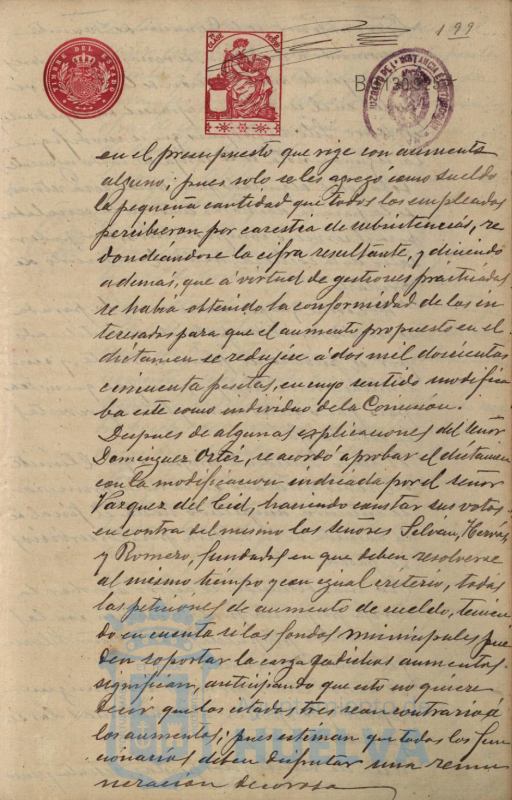 199
TIMBRE DEL ESTADO
en el presupuesto que rige con aumento
alguno; pues solo se les agregó como sueldo
la pequeña cantidad que todos los empleados
percibieron por carestía de subsistencias, re
dondeándose la cifra resultante, y diciendo
además, que á virtud de gestiones practicadas
se había obtenido la conformidad de los in
teresados para que el aumento propuesto en el
dictamen se redujese á dos mil doscientas
cincuenta pesetas, en cuyo sentido modifica
ba este como individuo de la Comisión.
Despues de algunas explicaciones del señor
Dominguez Ortiz, se acordó aprobar el dictamen
con la modificacion indicada por el señor
Vazquez del Cid, haciendo constar sus votos
en contra del mismo los señores Selván,
y Romero, fundados en que deben resolverse
al mismo tiempo y con igual criterio, todas
las peticiones de aumento de sueldo, tenien
do en cuenta si los fondos municipales pue
den soportar la carga que dichos aumentos
significan, anticipando que esto no quiere
decir que los citados tres sean contrarios á
los aumentos, pues estiman que todos los fun
cionarios deben disfrutar una remu
neración decorosa
HUELVA